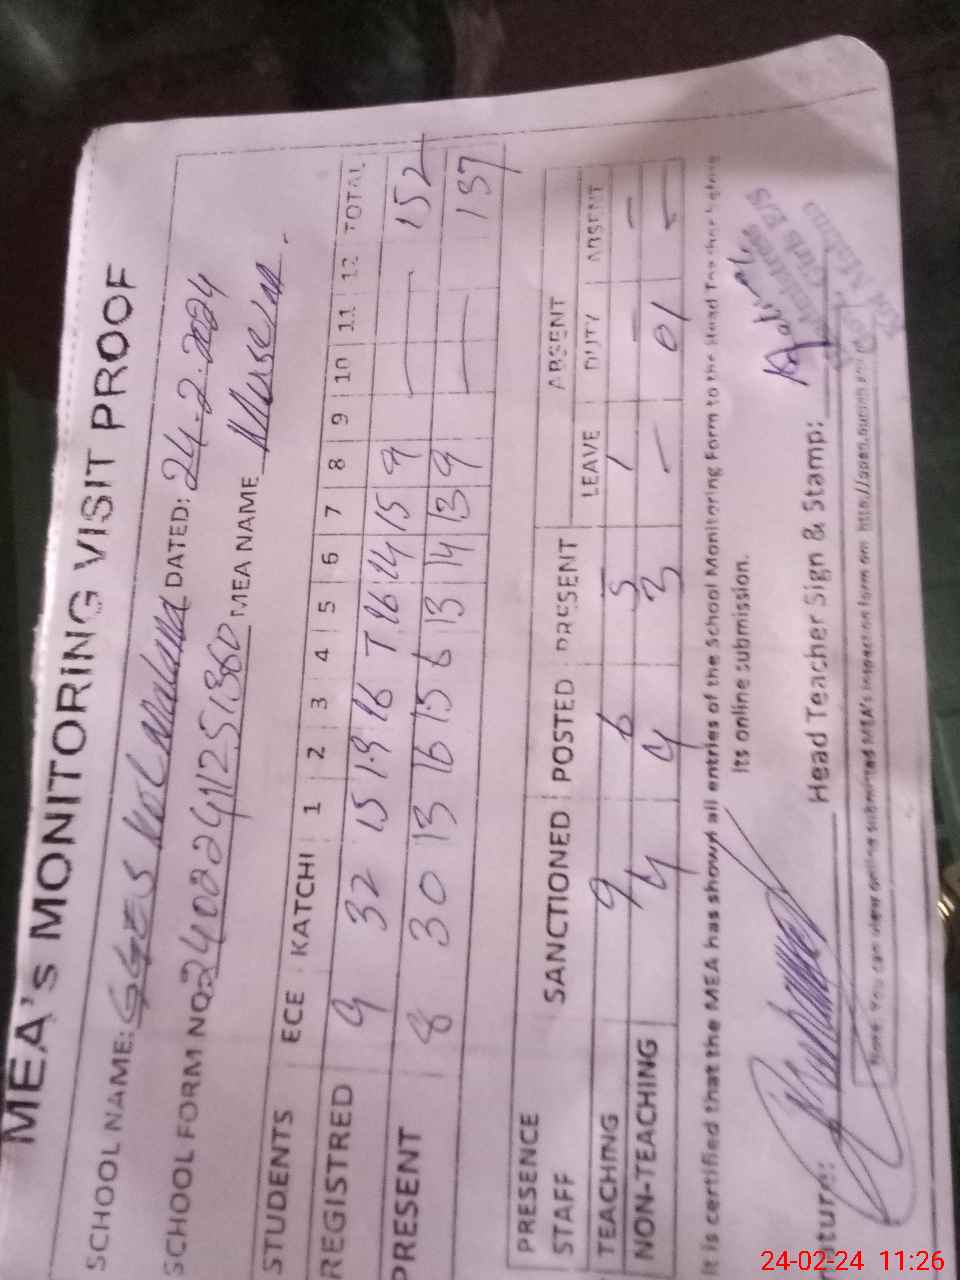 MEA's MONITORING VISIT PROOF
SCHOOL NAME: GGES Kot Maland DATED: 24-2-2024
SCHOOL FORM NO. MEA NAME
STUDENTS ECE KATCHI 1 2 3 4 5 6 7 8 9 10 11 12 TOTAL
REGISTRED 9 32 15 19 16 7 16 14 15 9 152
PRESENT 8 30 13 16 15 6 13 14 13 9 137
PRESENCE ABSENT
STAFF SANCTIONED POSTED PRESENT LEAVE DUTY ABSENT
TEACHING 9 6 5 1 - -
NON-TEACHING 4 4 3 - 01 -
It is certified that the MEA has shown all entries of the School Monitoring Form to the Head Teacher before
its online submission.
ature: Head Teacher Sign & Stamp:
Girls E/S
Note: You can view online submitted MEA's inspection form on:
24-02-24 11:26